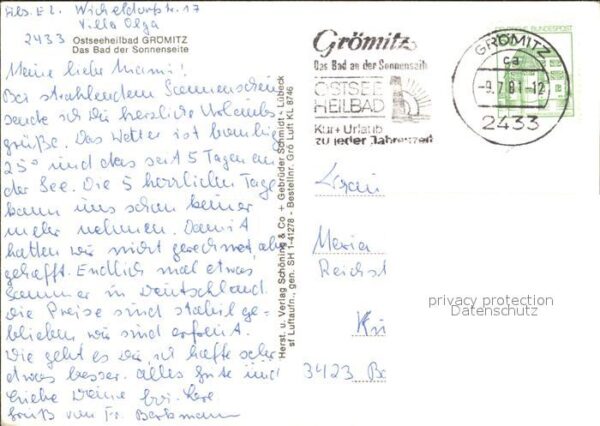 Wicheldorfstr. 17
Villa Olga
2433 Ostseeheilbad GRÖMITZ
Das Bad der Sonnenseite
Meine liebe Mammi!
Bei strahlendem Sonnenschein
sende ich Dir herzliche Urlaubs
grüße. Das Wetter ist
25° und das seit 5 Tagen an
der See. Die 5 herrlichen Tage
kann uns schon keiner
mehr nehmen. Damit
hatten wir nicht gerechnet, aber
gehofft. Endlich mal etwas
Sommer in Deutschland.
Die Preise sind stabil ge-
blieben, wir sind erfreut.
Wie geht es Dir, ich hoffe sehr
etwas besser. Alles Gute und
Liebe Deine
Gruß von Fr.
Herst. u. Verlag Schöning & Co + Gebrüder Schmidt - Lübeck
sf Luftaufn., gen. SH 1-41278 - Bestellnr. Grö Luft KL 8746
Grömitz
Das Bad an der Sonnenseite
OSTSEE
HEILBAD
Kur + Urlaub
zu jeder Jahreszeit
GRÖMITZ
ca
-9.7.81-12
2433
DEUTSCHE BUNDESPOST
Frau
Maria
Reichst
3423 Ba
privacy protection
Datenschutz